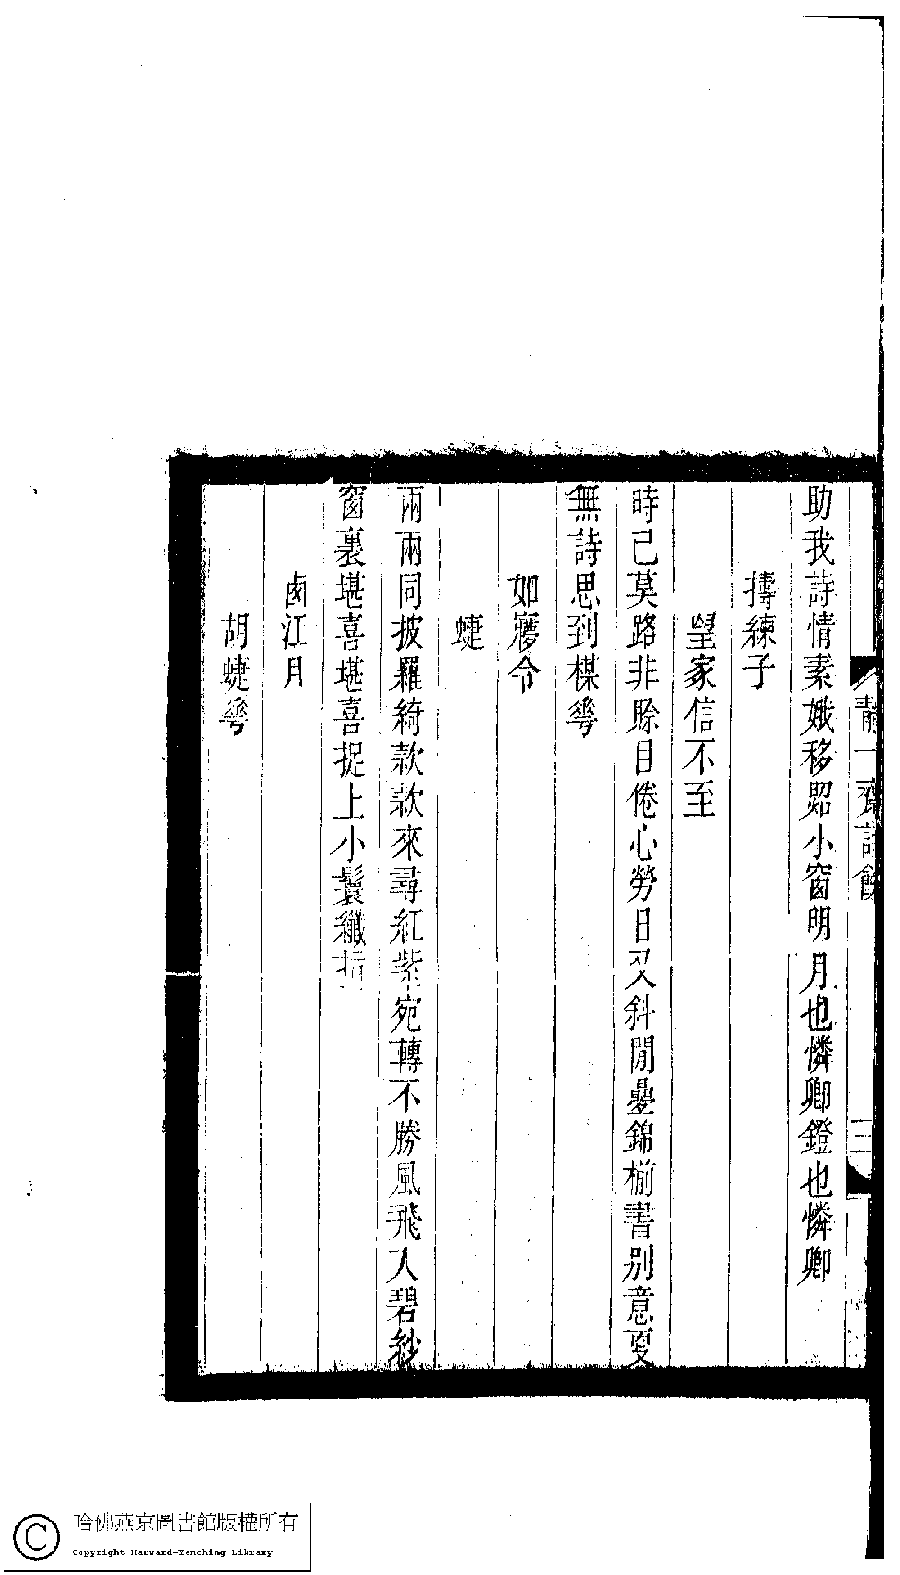 靜一齋詩餘
三
助我詩情素娥移照小窗明月也憐卿鐙也憐卿
擣練子
望家信不至
時已莫路非賖目倦心勞日又斜閒疊錦榒書別意更
無詩思到楳蕚
如㝱令
蜨
兩兩同披羅綺款款來尋紅紫宛轉不勝風飛入碧紗
窗裏堪喜堪喜捉上小鬟纖指
鹵江月
胡蜨蕚
哈佛燕京圖書館版權所有
Copyright Harvard-Yenching Library